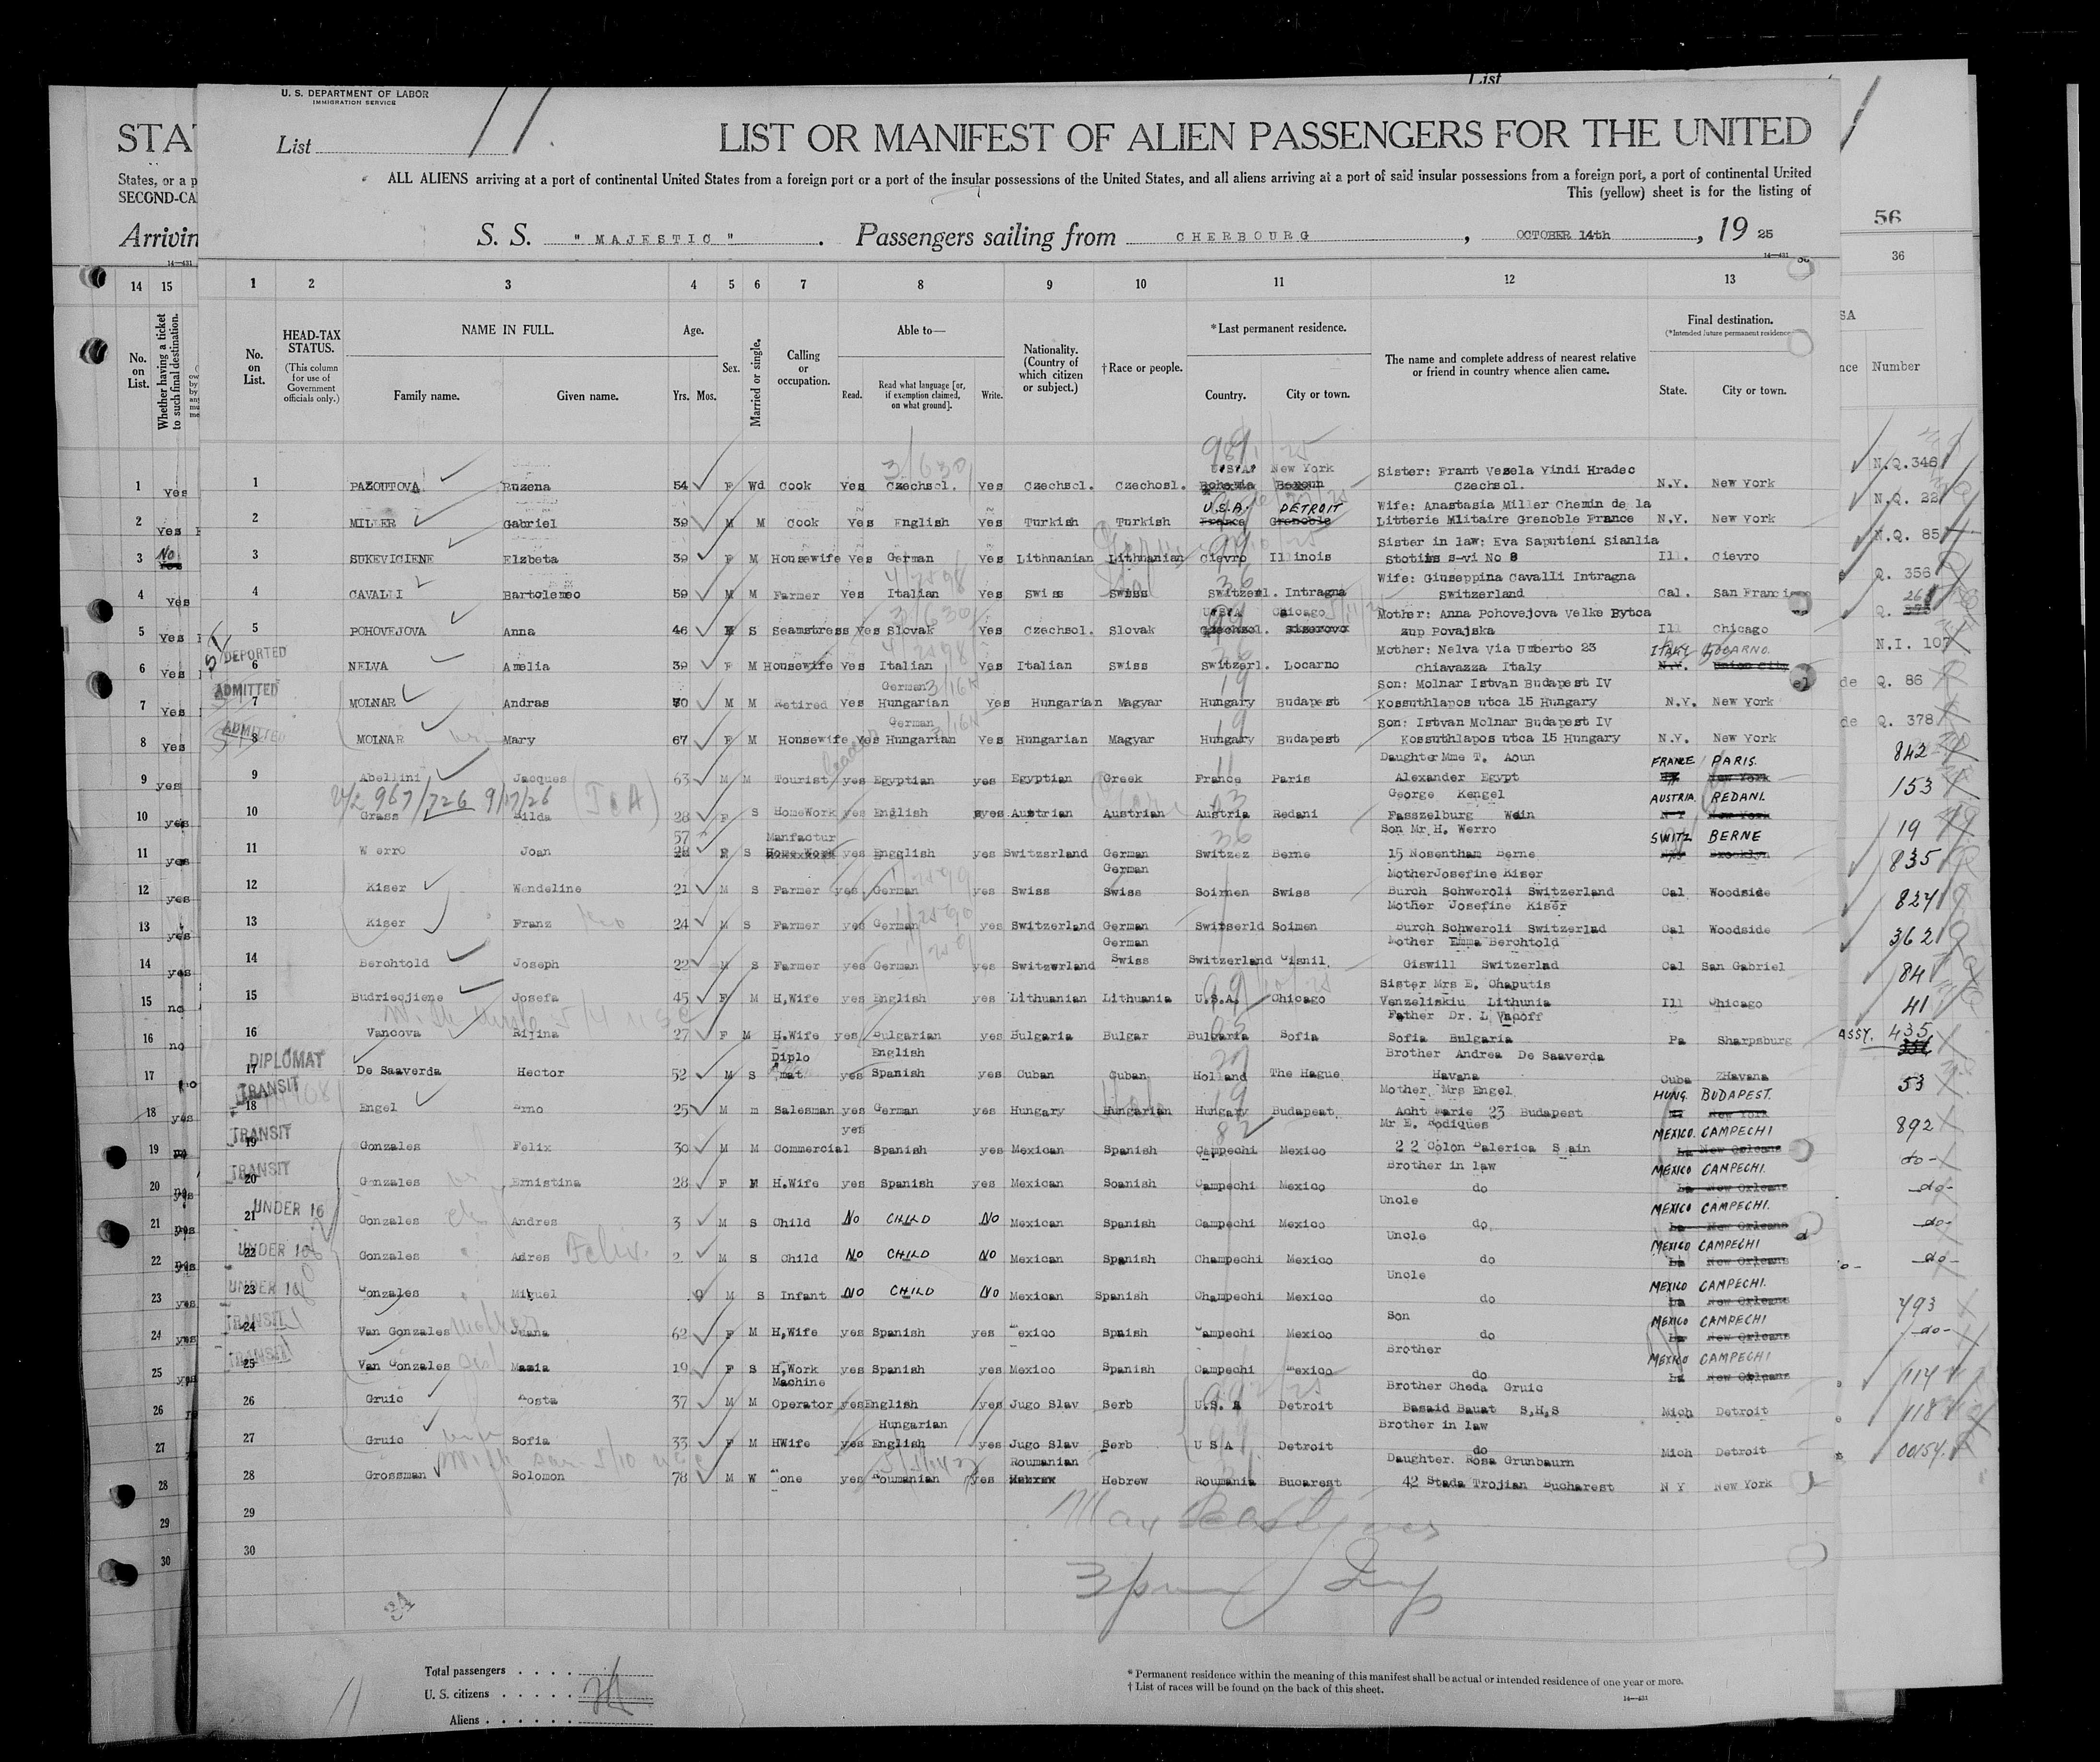 List
U. S. DEPARTMENT OF LABOR
IMMIGRATION SERVICE
STAT
List 11
LIST OR MANIFEST OF ALIEN PASSENGERS FOR THE UNITED
States, or a p
SECOND-CA
ALL ALIENS arriving at a port of continental United States from a foreign port or a port of the insular possessions of the United States, and all aliens arriving at a port of said insular possessions from a foreign port, a port of continental United
This (yellow) sheet is for the listing of
56
Arrivin
S. S. "MAJESTIC". Passengers sailing from CHERBOURG, OCTOBER 14th, 19 25
14—431
14—431
36
14 15
1 2 3 4 5 6 7 8 9 10 11 12 13
No. on List.
Whether having a ticket to such final destination.
No. on List.
HEAD-TAX STATUS.
(This column for use of Government officials only.)
NAME IN FULL.
Family name. Given name.
Age.
Yrs. Mos.
Sex.
Married or single.
Calling or occupation.
Able to—
Read. Read what language [or, if exemption claimed, on what ground]. Write.
Nationality. (Country of which citizen or subject.)
†Race or people.
*Last permanent residence.
Country. City or town.
The name and complete address of nearest relative or friend in country whence alien came.
Final destination.
(*Intended future permanent residence
State. City or town.
SA
nce Number
U.S.A. New York Sister: Frant Vesela Vindi Hradec
1 Yes 1 PAZOUTOVA Ruzena 54 F Wd Cook Yes Czechsol. Yes Czechsol. Czechosl. Bohemia Czechsol. N.Y. New York N.Q. 346
U.S.A. DETROIT Wife: Anastasia Miller Chemin de la
2 Yes 2 MILLER Gabriel 39 M M Cook Yes English Yes Turkish Turkish France Grenoble Litterie Mlitaire Grenoble France N.Y. New York N.Q. 22
Sister in law: Eva Saputieni Sianlia
3 No Yes 3 SUKEVICIENE Elzbeta 39 F M Housewife Yes German Yes Lithuanian Lithuanian Cievro Illinois s-vi No 8 Ill. Cievro N.Q. 85
Wife: Giuseppina Cavalli Intragna
4 Yes 4 CAVALLI Bartolemeo 59 M M Farmer Yes Italian Yes Swiss Swiss Switzerl. Intragna Switzerland Cal. San Franci Q. 356
U.S.A Chicago Mother: Anna Pohovejova Velke Bytca
5 Yes 5 POHOVEJOVA Anna 46 F S Seamstress Yes Slovak Yes Czechsol. Slovak Czechsol. zup Povajska Ill Chicago Q.
DEPORTED Mother: Nelva Via Umberto 23 ITALY LOCARNO.
6 Yes 6 NELVA Amelia 39 F M Housewife Yes Italian Yes Italian Swiss Switzerl. Locarno Chiavazza Italy N.Y. Union City N.I. 107
ADMITTED German Son: Molnar Istvan Budapest IV
7 Yes 7 MOLNAR Andras 70 M M Retired Yes Hungarian Yes Hungarian Magyar Hungary Budapest Kossuthlapos utca 15 Hungary N.Y. New York de Q. 86
ADMITTED German Son: Istvan Molnar Budapest IV
8 Yes 8 MOLNAR Mary 67 F M Housewife Yes Hungarian Yes Hungarian Magyar Hungary Budapest Kossuthlapos utca 15 Hungary N.Y. New York de Q. 378
Daughter Mme T. Aoun FRANCE PARIS.
9 yes 9 Abellini Jacques 63 M M Tourist yes Egyptian yes Egyptian Greek France Paris Alexander Egypt New York 842
George Kengel AUSTRIA REDANI.
10 yes 10 Grass Hilda 28 F S HomeWork yes English yes Austrian Austrian Austria Redani Fasszelburg Wein N Y New York 153
57 Manfactur Son Mr. H. Werro SWITZ BERNE
11 yes 11 Werro Joan 28 F S Home Work yes Engglish yes Switzerland German Switzez Berne 15 Nosentham Berne Brooklyn 19
German MotherJosefine Kiser
12 yes 12 Kiser Wendeline 21 M S Farmer yes German yes Swiss Swiss Soirnen Swiss Burch Schweroli Switzerland Cal Woodside 835
Mother Josefine Kiser
13 yes 13 Kiser Franz 24 M S Farmer yes German yes Switzerland German Switserld Soimen Burch Schweroli Switzerlad Cal Woodside 824
German Mother Emma Berchtold
14 yes 14 Berchtold Joseph 22 M S Farmer yes German yes Switzerland Swiss Switzerland Gisnil Giswill Switzerlad Cal San Gabriel 362
Sister Mrs E. Chaputis
15 no 15 Budriecjiene Josefa 45 F M H,Wife yes English yes Lithuanian Lithuania U.S.A. Chicago Venzeliskiu Lithunia Ill Chicago 84
Father Dr. L Vanoff
16 no 16 Vancova Rijina 27 F M H.Wife yes Bulgarian yes Bulgaria Bulgar Bulgaria Sofia Sofia Bulgaria Pa Sharpsburg 41
DIPLOMAT Diplo English Brother Andrea De Saaverda ASSY. 435
17 no 17 De Saaverda Hector 52 M S mat yes Spanish yes Cuban Cuban Holland The Hague Havana Cuba ZHavana
TRANSIT Mother Mrs Engel HUNG. BUDAPEST.
18 yes 18 Engel Erno 25 M m Salesman yes German yes Hungary Hungarian Hungary Budapest Acht Marie 23 Budapest New York 53
TRANSIT yes Mr E. Rodiques MEXICO. CAMPECHI
19 no 19 Gonzales Felix 30 M M Commercial Spanish yes Mexican Spanish Campechi Mexico 2 2 Colon Palerica S ain La New Orleans 892
TRANSIT Brother in law MEXICO CAMPECHI.
20 yes 20 Gonzales Ernistina 28 F M H.Wife yes Spanish yes Mexican Soanish Campechi Mexico do La New Orleans do-
UNDER 16 Uncle MEXICO CAMPECHI.
21 yes 21 Gonzales Andres 3 M S Child No CHILD No Mexican Spanish Campechi Mexico do, La New Orleans -do-
UNDER 16 Uncle MEXICO CAMPECHI
22 yes 22 Gonzales Adres Felix. 2 M S Child No CHILD No Mexican Spanish Champechi Mexico do La New Orleans -do-
UNDER 16 Uncle MEXICO CAMPECHI.
23 yes 23 Gonzales Miguel 9 M S Infant No CHILD No Mexican Spanish Champechi Mexico do La New Orleans -do-
TRANSIT Son MEXICO CAMPECHI
24 yes 24 Van Gonzales mother Juana 62 F M H,Wife yes Spanish yes exico Spnish Campechi Mexico do La New Orleans 493
TRANSIT Brother MEXICO CAMPECHI
25 yes 25 Van Gonzales Masia 19 F S H,Work yes Spanish yes Mexico Spanish Campechi Mexico do La New Orleans -do-
Machine Brother Cheda Gruic
26 26 Gruic Kosta 37 M M Operator yesEnglish yes Jugo Slav Serb U.S. A Detroit Basaid Bauat S,H,S Mich Detroit 114
Hungarian Brother in law
27 27 Gruic Sofia 33 F M HWife yes English yes Jugo Slav Serb U S A Detroit do Mich Detroit 118
Roumanian Daughter. Rosa Grunbaum
28 28 Grossman Solomon 78 M W None yes Roumanian yes Hebrew Hebrew Roumania Bucarest 42 Stada Trojian Bucharest N Y New York 00154.
29 29
30 30
Total passengers . . . .
U. S. citizens . . . . .
Aliens . . . . . .
11
* Permanent residence within the meaning of this manifest shall be actual or intended residence of one year or more.
† List of races will be found on the back of this sheet.
14—431